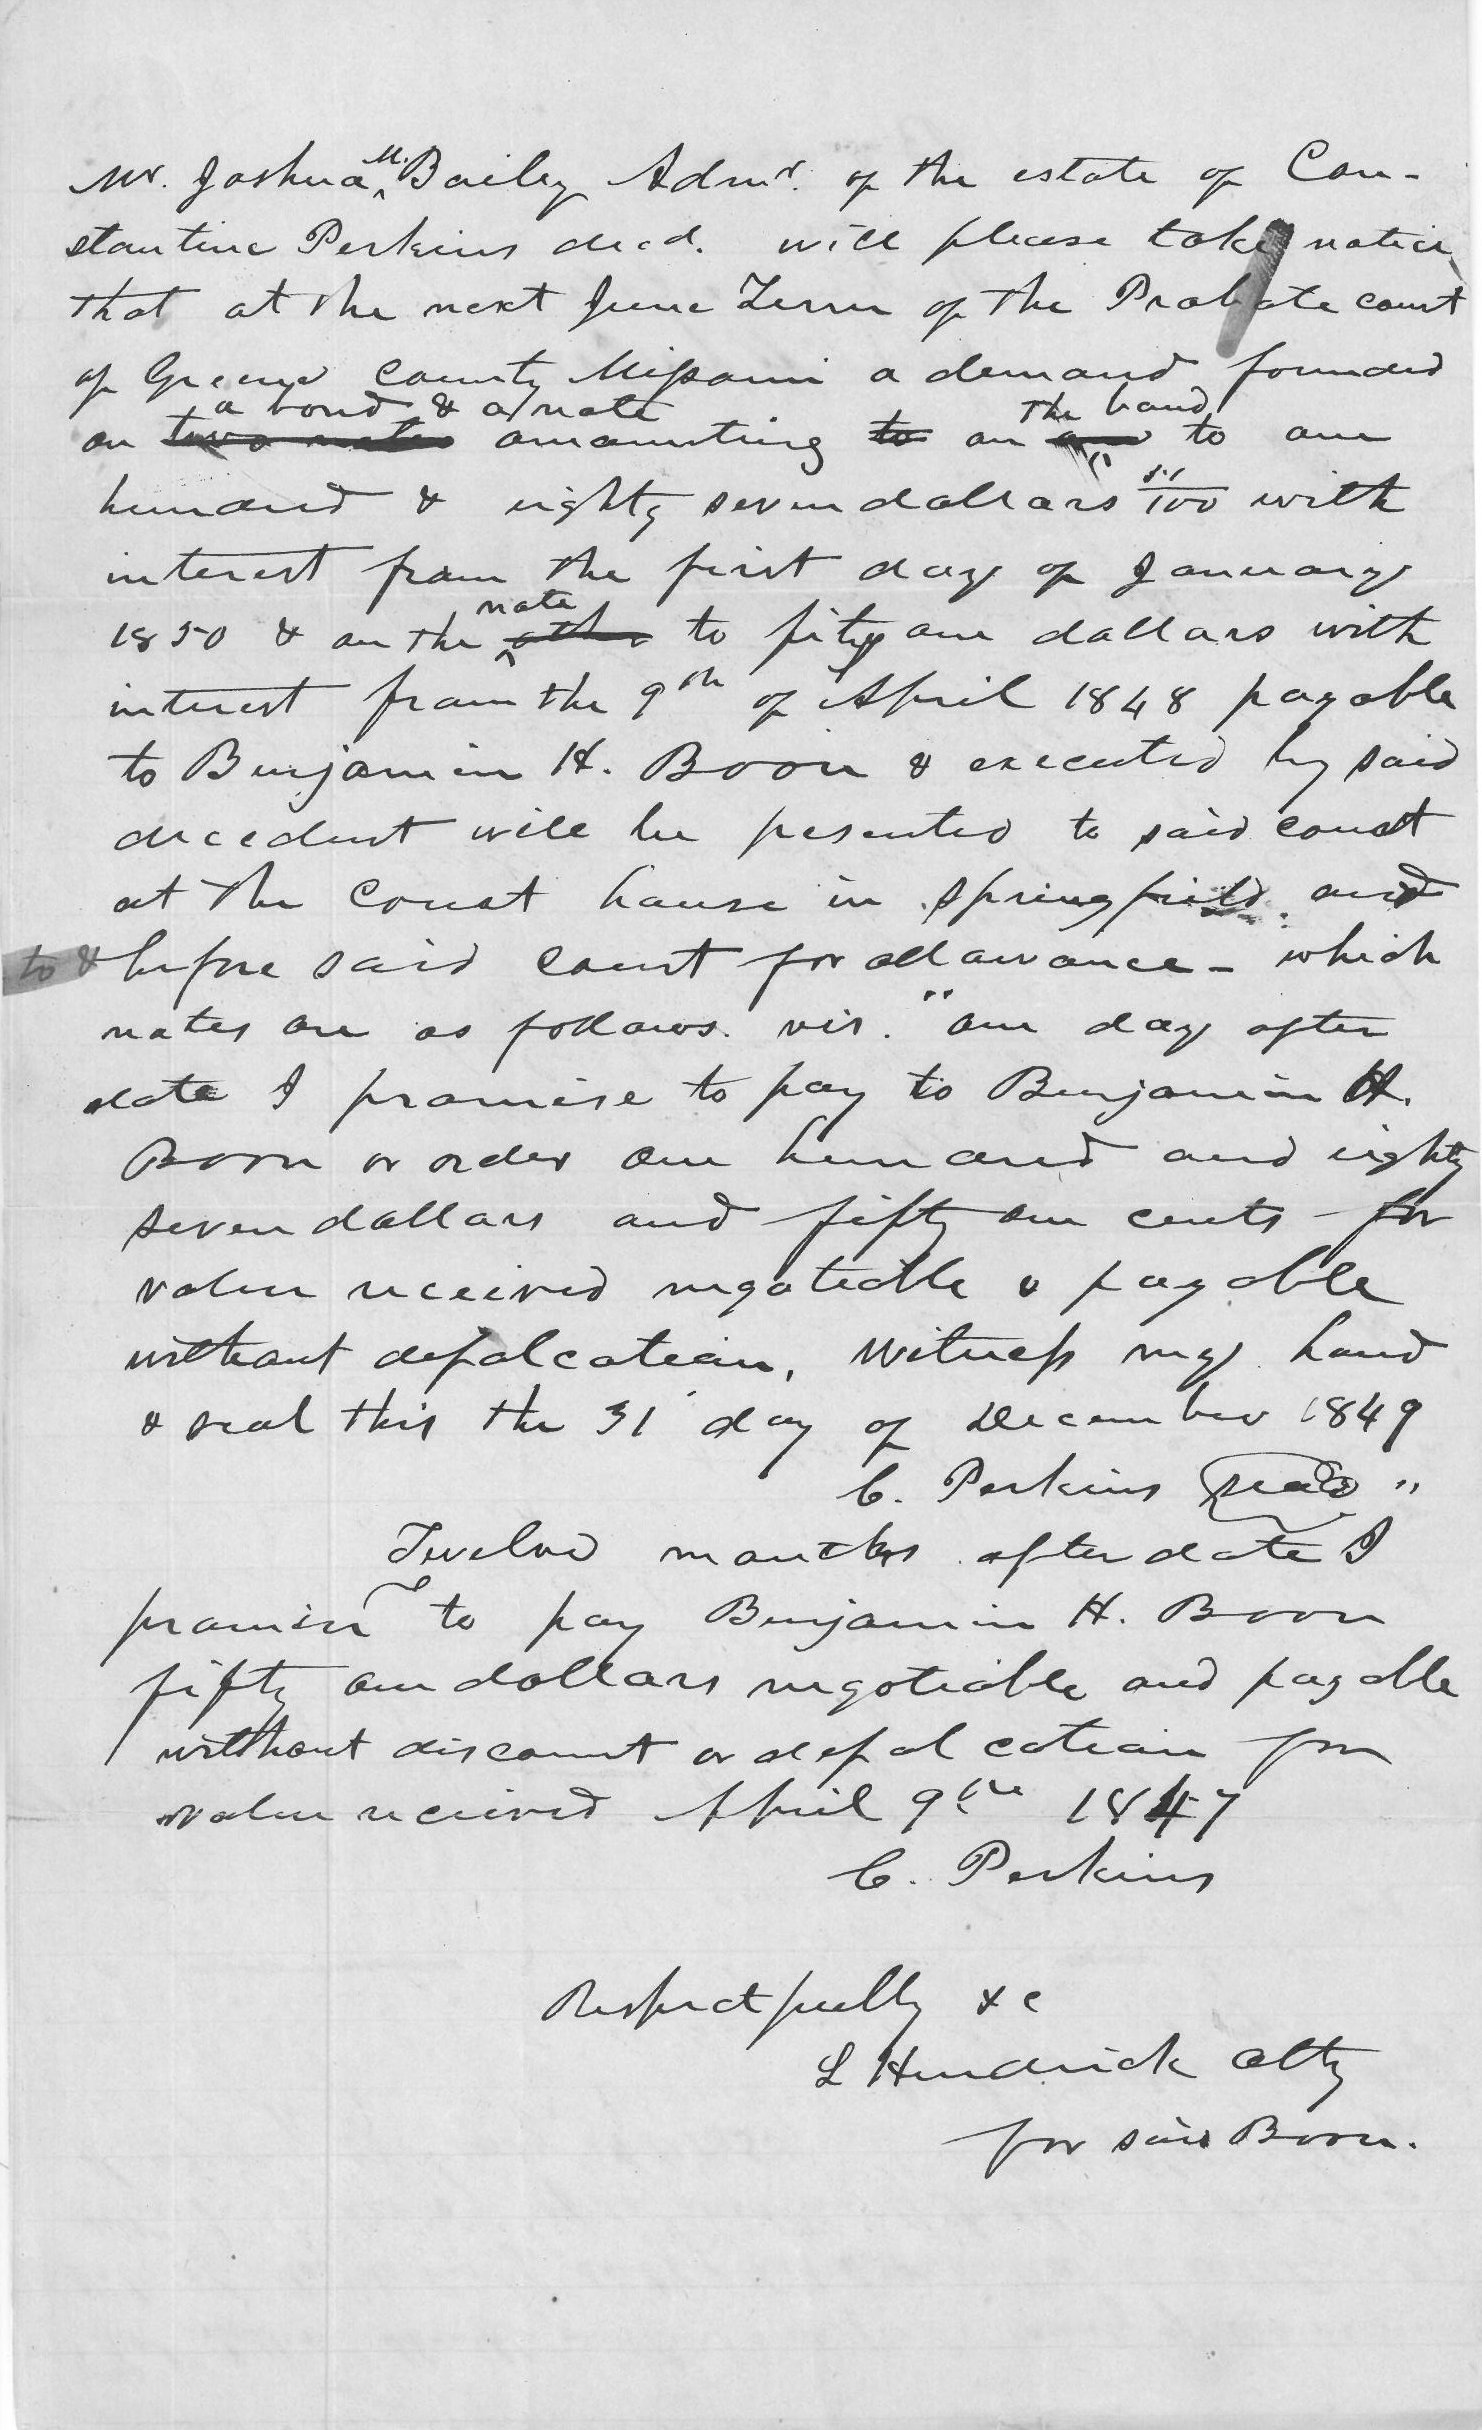 Mr. Joshua M. Bailey Admr. of the estate of Con-
stantine Perkins decd. will please take notice
that at the next June Term of the Probate court
of Greene County Missouri a demand founded
on a bond & a note amounting on the bond to one
hundred & eighty seven dollars 51/100 with
interest from the first day of January
1850 & on the note to fity one dollars with
interest from the 9th of April 1848 payable
to Benjamin H. Boon & executed by said
decedent will be pesented to said court
at the Court house in Springfield and
to & before said court for allowance - which
notes are as follows. vis. "One day after
date I promise to pay to Benjamin H.
Boon or order one hundred and eighty
seven dollars and fifty one cents for
value received negotiable & payable
without defalcation, Witness my hand
& seal this the 31 day of December 1849
C. Perkins seal "
Twelve months after date I
promise to pay Benjamin H. Boon
fifty one dollars negotiable and payable
without discount or defalcation for
value received April 9th 1847
C. Perkins
Respectfully &c
L Hendrick Atty
for said Boon.